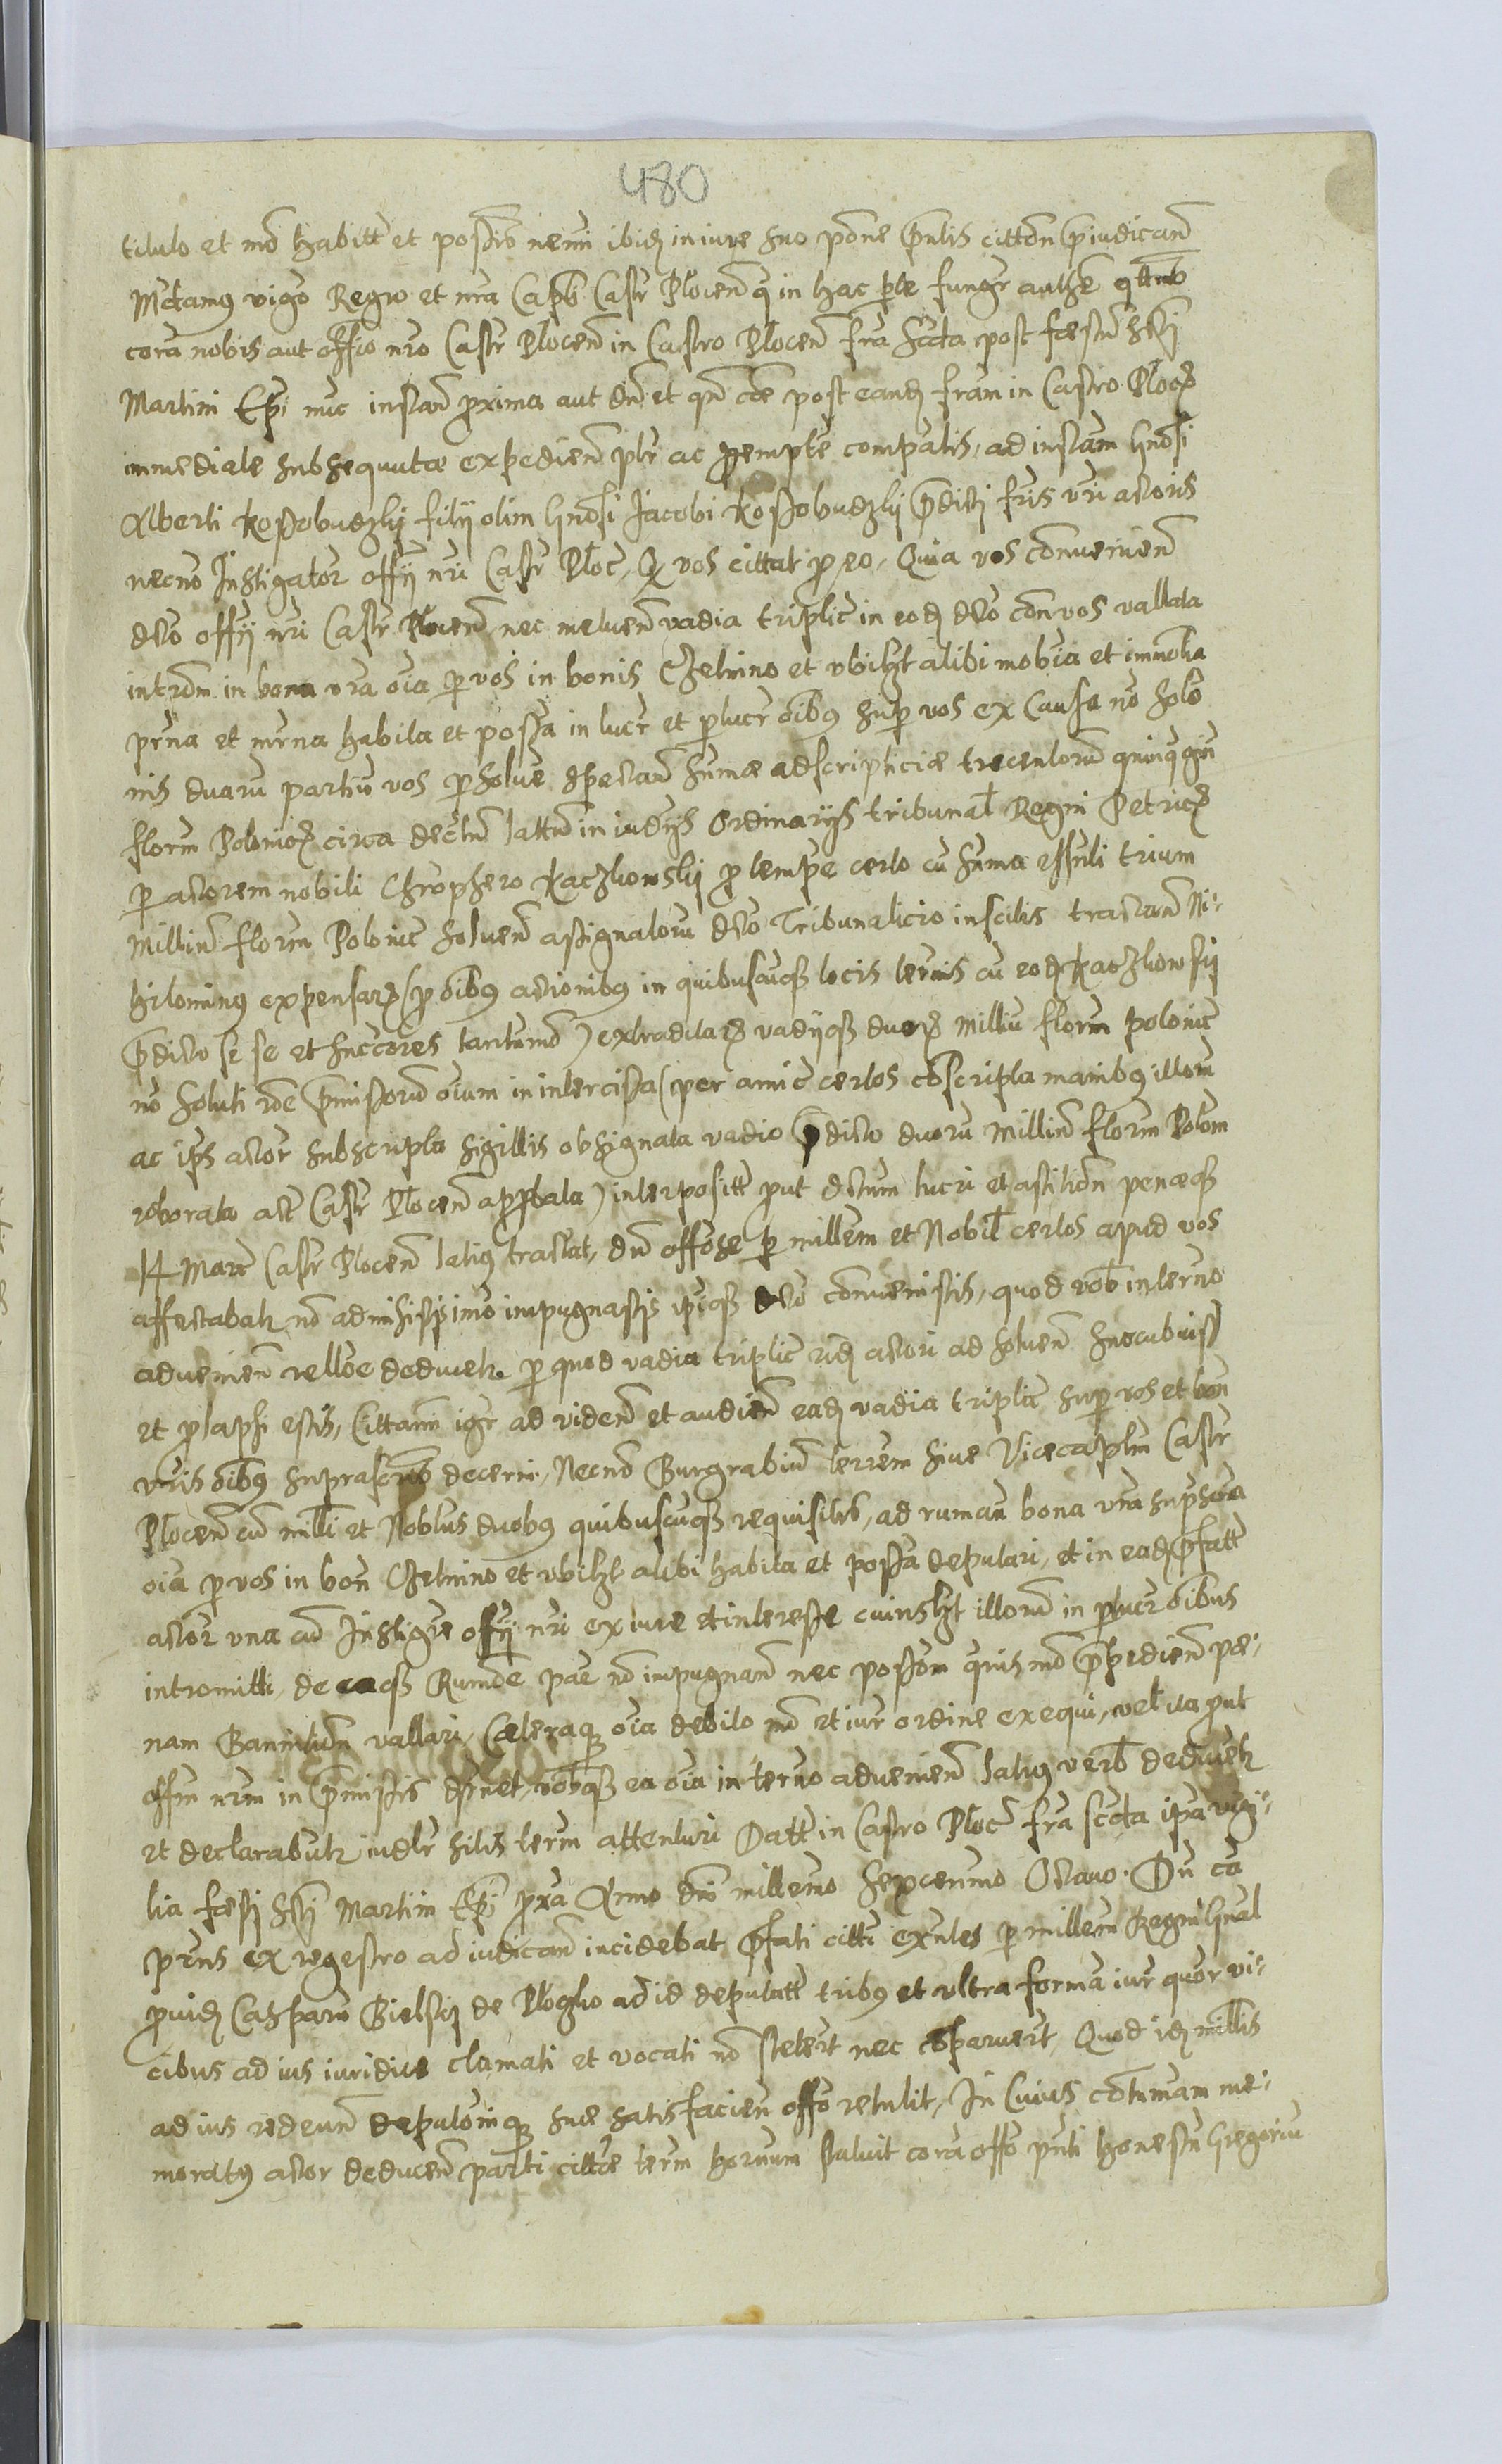 480
titulo et mō habitt et possīb nemī ibidȝ in iure suo pōne p̄ntis cittōn p̄iudicañ
Mdamȝ vigō Regiō et nrā Capli Castr Plocen̄ q̄ in hac pte fungr authe qttnō
corā nobis aut offio nro Castr Plocen̄ in Castro Plocen̄ fra scda post fæstū scti
Martini Epi nūc instañ proxima aut dn̄ et qn̄ cōe post eandȝ fram in Castro Plocȝ
immediate subsequuta expedieñ pltr ac pemptē compatis, ad instam Gnosi
Alberti Kossobudzky filij olim Gnosi Jacobi Kossobudzky p̄dicti fris vri actoris
necnō Instigatōr offij nri Castr Ploc, Qz vos cittat pro eo, Quia vos conuenieñ
dcto offij nri Castr Plocen̄ nec metuen̄ vadia triplic in eodȝ dcto con vos vallata
introm in bona vra oīa p vos in bonis Czelnino et vbilzt alibi mobīa et immobīa
prna et mrna habita et possa in lucr et plucr oībȝ sup vos ex causa nō solō
nis duarū partiū vos psolue spectañ sumæ adscripticiæ trecentorū quinqȝgin
florm Polonicȝ circa dectū lattū in iudijs Ordinarijs tribunal Regni Petricȝ
p actorem nobili Chrōphero Kaczkowsky p tempe certo cū suma
Milliū florm Polonic soluen̄ assignatorū dcto Tribunalicio inscitis tractañ Ni-
hilominȝ expensarȝ (p oībȝ actionibȝ in quibusuqȝ locis termis cū eodȝ Kaczkowsky
p̄dicto se se et succōres tantumō) extraditarȝ vadijqȝ duorȝ Milliū florm polonic
nō soluti rōe p̄missorū oium in intercisa (per amic certos cōscripta manibȝ illorū
ac ips actor subscripta sigillis obsignata vadio p̄dicto duorū Milliū florm Polon
roborata act Castr Plocen̄ approbata) interpositt put dctum lucri et astitiōn penæqȝ
14 Marc Castr Plocen̄ latiȝ tractat, dū offōse p millem et Nobil certos apud vos
affectabatr nō admisistis imo impugnastis ipīqȝ dcto conuenistis, quod vob in termo
aduenien̄ dedūcetr. p quod vadia triplic eidȝ actori ad soluen̄ succubuistȝ
et plapsi estis, Cittami igr ad viden̄ et audien̄ eadȝ vadia triplic sup vos et bon
vris oībȝ suprascrīb decerni, Necnō Burgrabiū terrem siue Vicecaptm Castr
Plocen̄ cū milli et Noblūs duobȝ quibuscūqȝ requisitis, ad rumañ bona vra supscta
oīa p vos in bon Czelnino et vbilzt alibi habita et possa deputari, et in eadȝ p̄fatt
actōr vna cū Instigre offij nri ex iure et interesse cuiuslzt illorū in plucr oībus
intromitti, de eaqȝ Rumōe pac nō impugnañ nec possōm quismō p̄pedien̄ pæ-
nam Bannitiōn vallari, Cæteraqȝ oīa debito mō et iur ordine exequi, vel ita put
offm nrm in p̄missis dfniet, vobqȝ ea oīa in termo aduenien̄ latiȝ verb dedūcetr
et declarabūtr iudlr sitis term attenturi Datt in Castro Ploc fra scda ipa vigi-
lia fæsti scti Martini Epi pxa Anno dni millemo sexcenmo Octauo. Dn̄ cā
prns ex regestro ad iudicañ incidebat p̄fati citti exntes p millem Regni Gnal
puidȝ Casparū Bielsky de Plogko ad id deputatt tribȝ et vltra formā iur quor vi-
cibus ad ius iuridice clamati et vocati nō steterūt nec cōparuerūt, Quod idȝ millis
ad ius redeun̄ deputōniqȝ suæ satisfacien̄ offō retulit, In Cuius cōtumam me-
moratȝ actor deducen̄ parti cittæ term hornum statuit corā offō pnti honestū Gregoriū